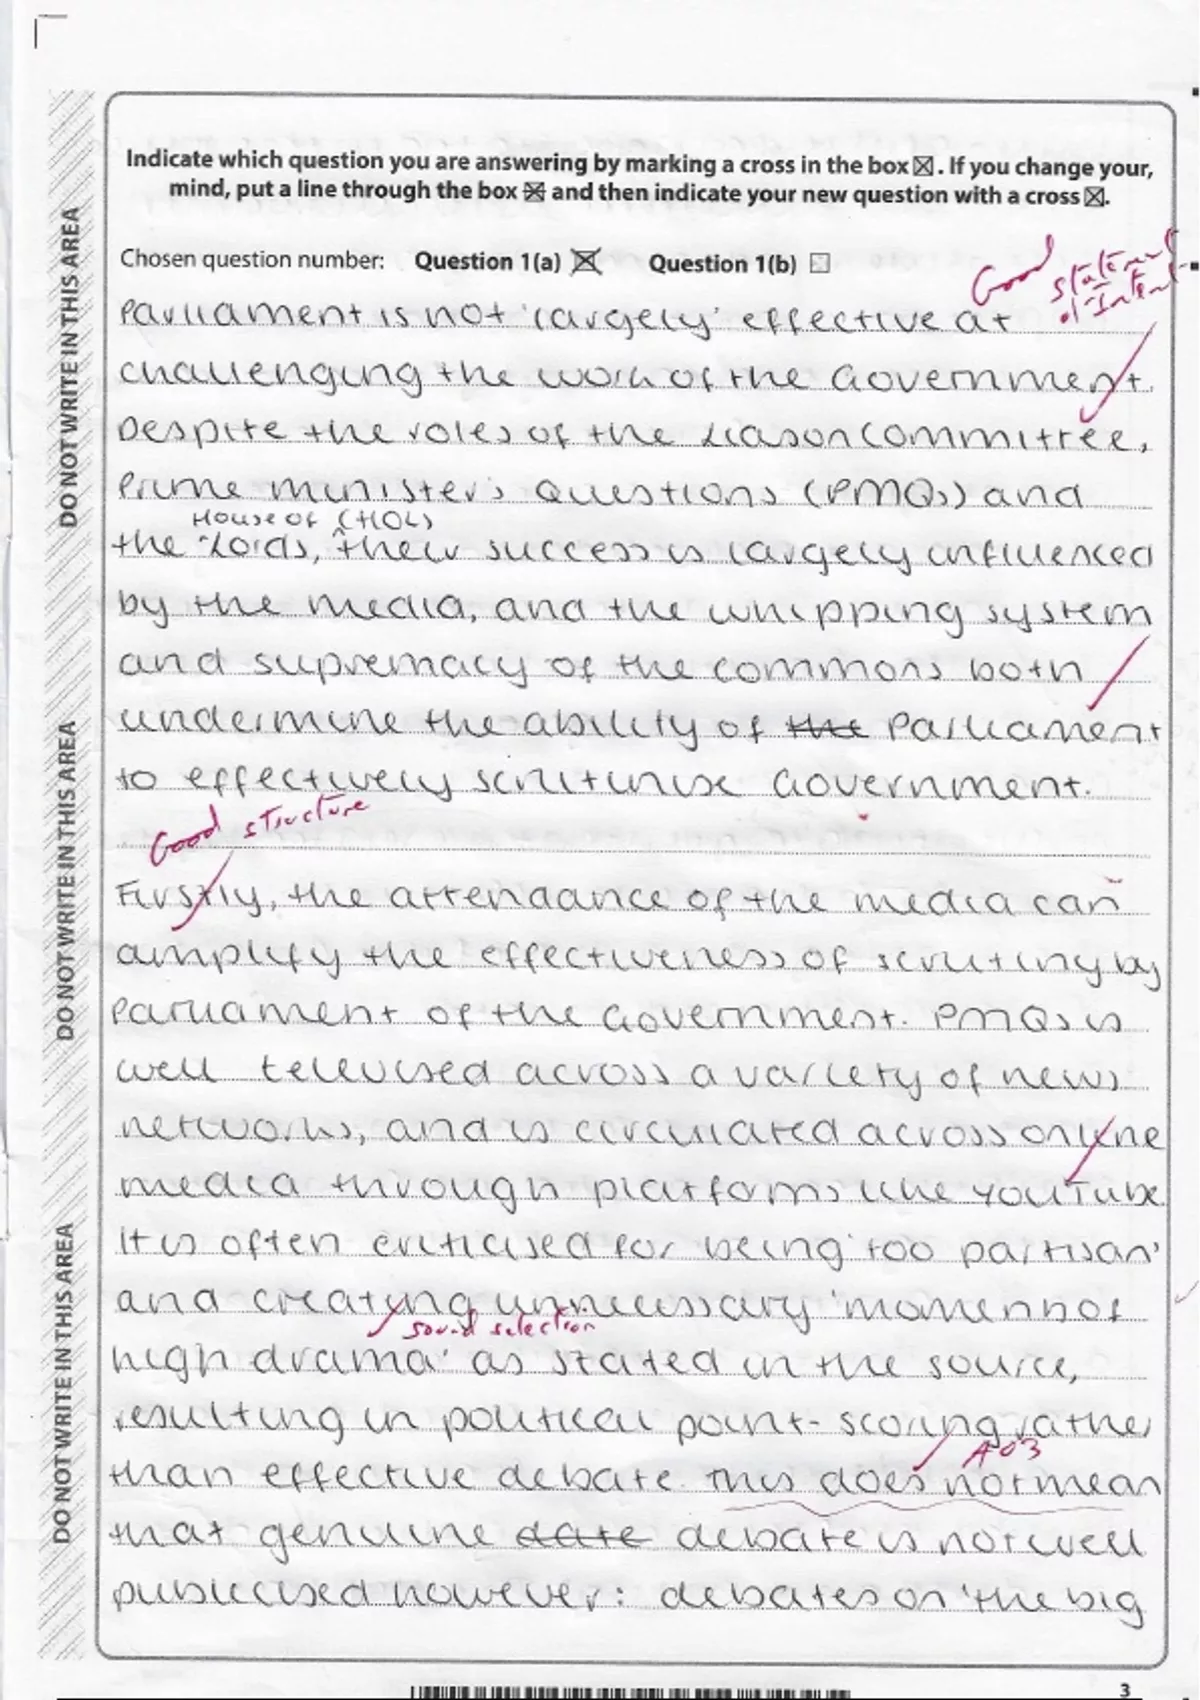 Indicate which question you are answering by marking a cross in the box ☒. If you change your,
mind, put a line through the box ☒ and then indicate your new question with a cross ☒.
Chosen question number: Question 1(a) ☒ Question 1(b) ☐
Good statement
of Intent
Parliament is not 'largely' effective at
challenging the work of the Government.
Despite the roles of the Liason Committee,
Prime Minister's Questions (PMQs) and
House of (HOL)
the Lords, their success is largely influenced
by the media, and the whipping system
and supremacy of the commons both
undermine the ability of the Parliament
to effectively scrutinise Government.
Good structure
Firstly, the attendance of the media can
amplify the effectiveness of scrutiny by
Parliament of the Government. PMQs is
well televised across a variety of news
networks, and is circulated across online
media through platforms like YouTube.
It is often criticised for being 'too partisan'
and creating unnecessary 'moments of
sound selection
high drama' as stated in the source,
resulting in political point-scoring rather
AO3
than effective debate. This does not mean
that genuine date debate is not well
publicised however: debates on 'the big
DO NOT WRITE IN THIS AREA
DO NOT WRITE IN THIS AREA
DO NOT WRITE IN THIS AREA
3